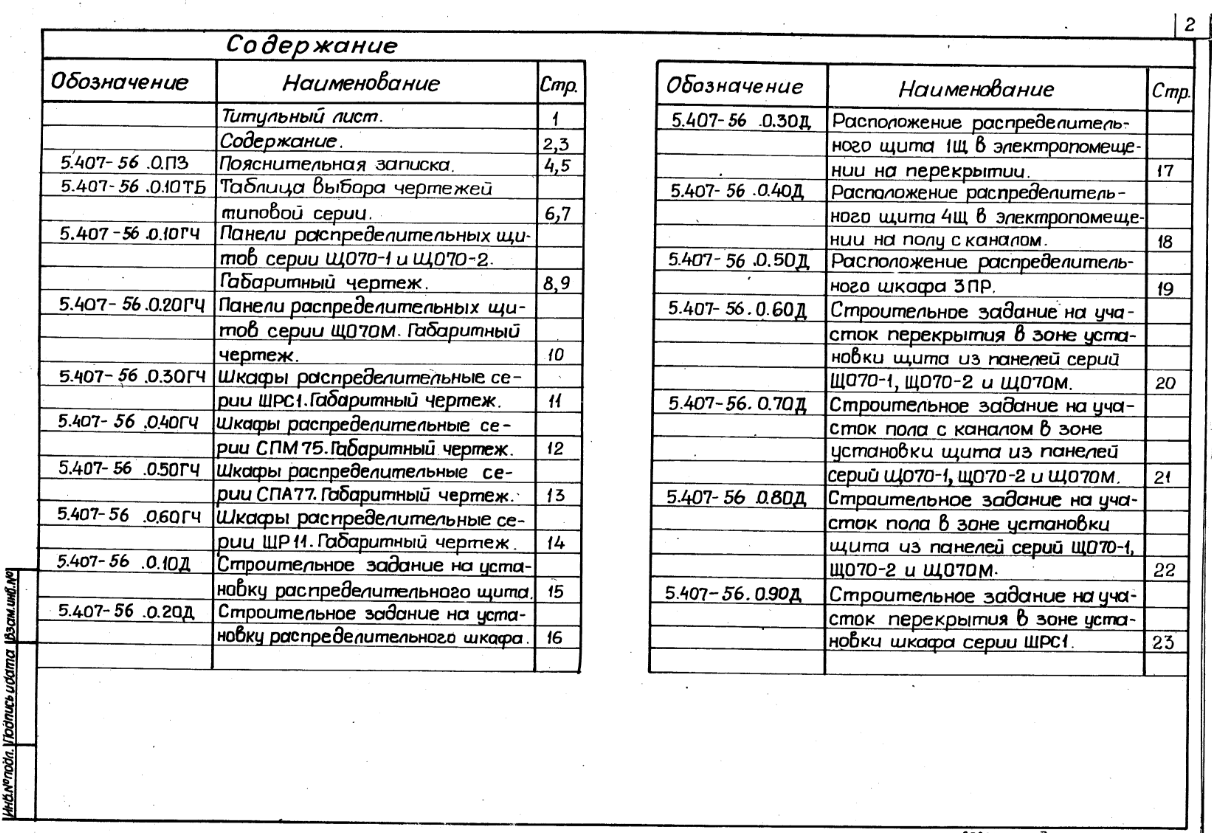 2
Содержание
Обозначение Наименование Стр.
Титульный лист. 1
Содержание. 2,3
5.407-56 .0.ПЗ Пояснительная записка. 4,5
5.407-56 .0.10ТБ Таблица выбора чертежей
типовой серии. 6,7
5.407-56 .0.10ГЧ Панели распределительных щи-
тов серии ЩО70-1 и ЩО70-2.
Габаритный чертеж. 8,9
5.407-56 .0.20ГЧ Панели распределительных щи-
тов серии ЩО70М. Габаритный
чертеж. 10
5.407-56 .0.30ГЧ Шкафы распределительные се-
рии ШРС1. Габаритный чертеж. 11
5.407-56 .0.40ГЧ Шкафы распределительные се-
рии СПМ75. Габаритный чертеж. 12
5.407-56 .0.50ГЧ Шкафы распределительные се-
рии СПА77. Габаритный чертеж. 13
5.407-56 .0.60ГЧ Шкафы распределительные се-
рии ШР11. Габаритный чертеж. 14
5.407-56 .0.10Д Строительное задание на уста-
новку распределительного щита. 15
5.407-56 .0.20Д Строительное задание на уста-
новку распределительного шкафа. 16
Обозначение Наименование Стр.
5.407-56 .0.30Д Расположение распределитель-
ного щита 1Щ в электропомеще-
нии на перекрытии. 17
5.407-56 .0.40Д Расположение распределитель-
ного щита 4Щ в электропомеще-
нии на полу с каналом. 18
5.407-56 .0.50Д Расположение распределитель-
ного шкафа 3ПР. 19
5.407-56.0.60Д Строительное задание на уча-
сток перекрытия в зоне уста-
новки щита из панелей серий
ЩО70-1, ЩО70-2 и ЩО70М. 20
5.407-56.0.70Д Строительное задание на уча-
сток пола с каналом в зоне
установки щита из панелей
серий ЩО70-1, ЩО70-2 и ЩО70М. 21
5.407-56 .0.80Д Строительное задание на уча-
сток пола в зоне установки
щита из панелей серий ЩО70-1,
ЩО70-2 и ЩО70М. 22
5.407-56.0.90Д Строительное задание на уча-
сток перекрытия в зоне уста-
новки шкафа серии ШРС1. 23
Инв.№подл. Подпись и дата Взам.инв.№